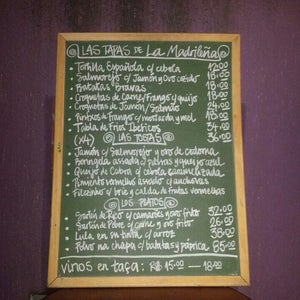 LAS TAPAS DE La Madrileña
Tortilla Española c/ cebola 12,00
Salmorejo c/ Jamón y Ovo cozido 18,00
Batatas Bravas
Croquetas de Carne/Frango c/ queijo 18,00
Croquetas de Jamón/Salmão 24,00
Pintxos de Frango c/ mostarda y mel
Tabla de Frios Ibéricos
(x4) LAS TOSTAS 36,00
Jamón c/ Salmorejo y ovo de codorna
Beringela assada c/ y queijo azul
Queijo de Cabra c/ cebola caramelizada
Pimiento vermelho assado c/ anchovas
Filezinho c/ brie y calda de frutas vermelhas
LOS PLATOS
Sartén de Rico c/ camarões y ovo frito 32,00
Sartén de Pobre c/ carne y ovo frito 26,00
Lula en su tinta c/ arroz 38,00
Polvo na chapa c/ batatas y páprica 85,00
vinos en taça: R$ 15,00 — 18,00